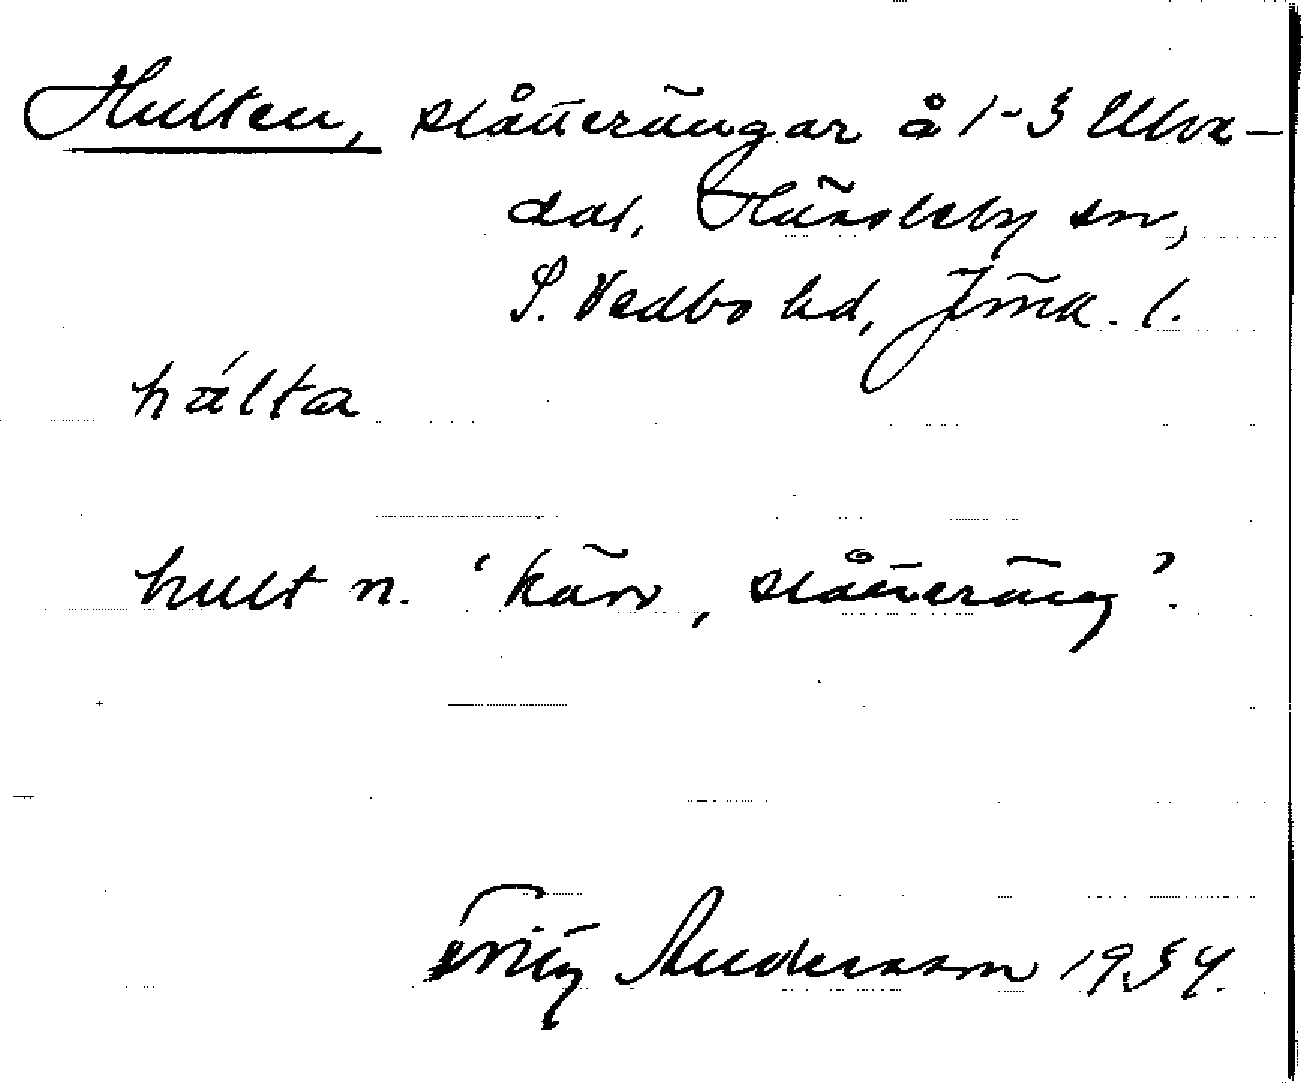 Hulten, slåtterängar å 1-3 Ulva-
dal, Hässleby sn,
S. Vedbo hd, Jönk. l.
hálta
hult n. 'kärr, slåtteräng'.
Fritz Andersson 1934.